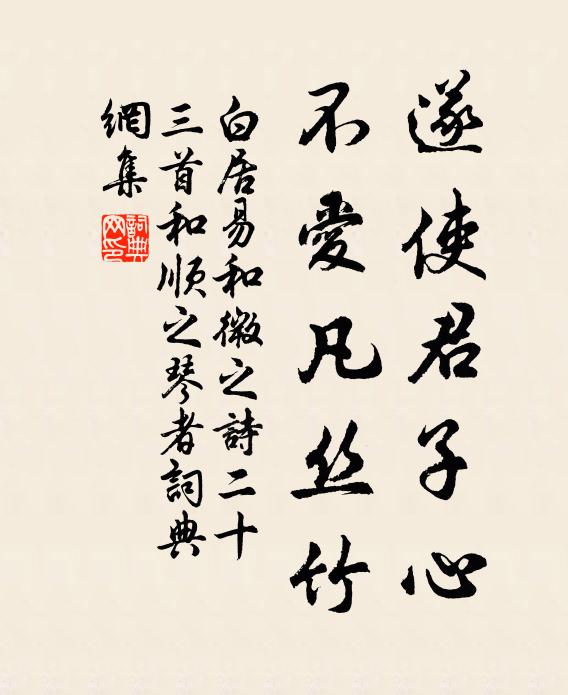 遂使君子心
不愛凡丝竹
白居易和微之詩二十
三首和顺之琴者詞典
網集
詞典網印